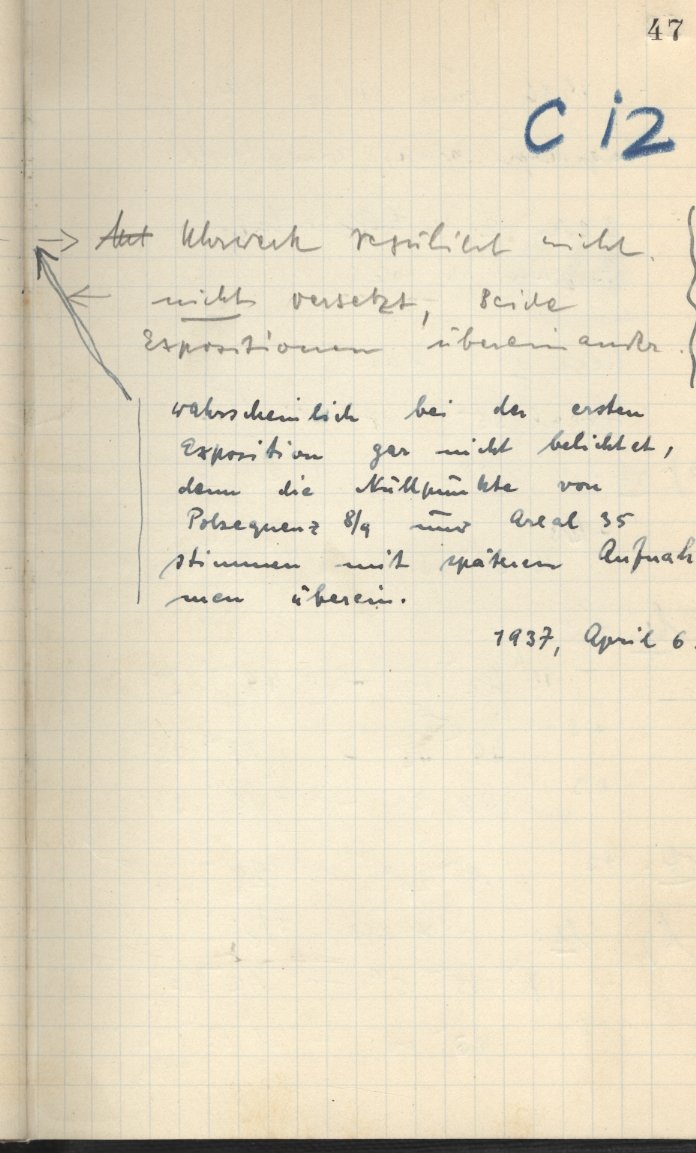 47
C i2
Uhrwerk reguliert nicht.
nicht versetzt, beide
Expositionen übereinander.
wahrscheinlich bei der ersten
Exposition gar nicht belichtet,
denn die Nullpunkte von
Polsequenz 8/9 und Areal 35
stimmen mit späteren Aufnah
men überein.
1937, April 6.